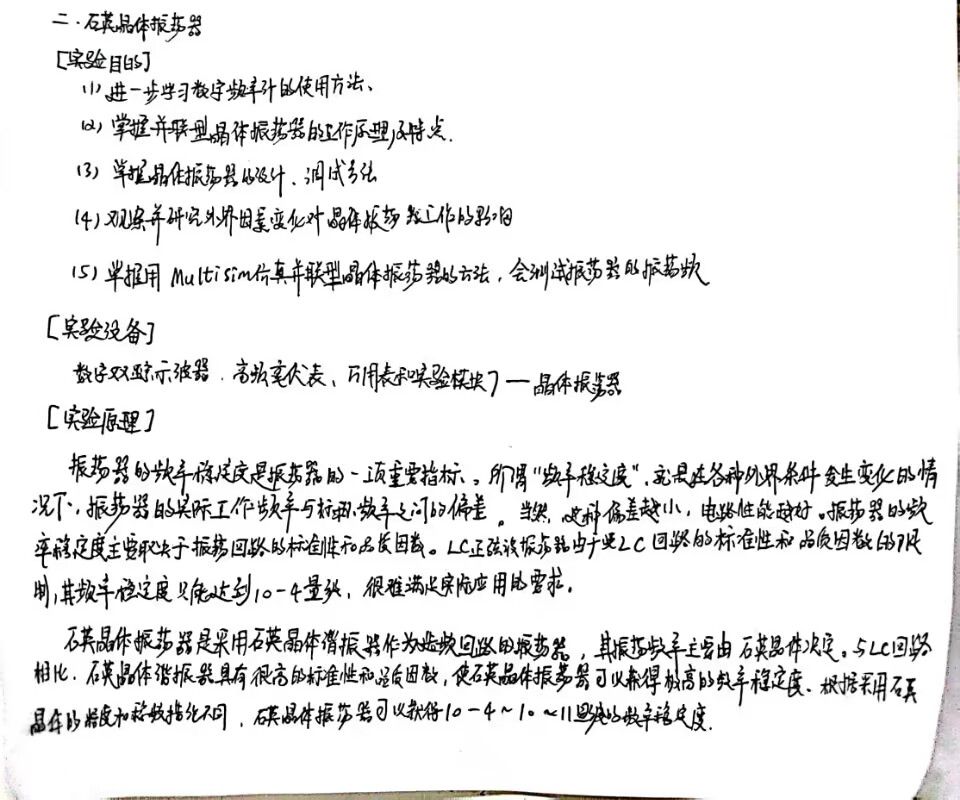 二．石英晶体振荡器
[实验目的]
(1)进一步学习数字频率计的使用方法、
(2)掌握并联型晶体振荡器的工作原理及特点.
(3)掌握晶体振荡器的设计、调试方法
(4)观察并研究外界因素变化对晶体振荡器工作的影响
(5)掌握用Multisim仿真并联型晶体振荡器的方法，会测试振荡器的振荡频
[实验设备]
数字双踪示波器．高频毫伏表、万用表和实验模块7—晶体振荡器
[实验原理]
振荡器的频率稳定度是振荡器的一项重要指标。所谓“频率稳定度”，就是在各种外界条件发生变化的情
况下，振荡器的实际工作频率与标称频率之间的偏差。当然，这种偏差越小，电路性能越好。振荡器的频
率稳定度主要取决于振荡回路的标准性和品质因数。LC正弦波振荡器由于受LC回路的标准性和品质因数的限
制,其频率稳定度只能达到10-4量级，很难满足实际应用的要求。
石英晶体振荡器是采用石英晶体谐振器作为选频回路的振荡器，其振荡频率主要由石英晶体决定。与LC回路
相比．石英晶体谐振器具有很高的标准性和品质因数，使石英晶体振荡器可以获得极高的频率稳定度．根据采用石英
晶体的精度和稳频措施不同，石英晶体振荡器可以获得10-4~10~11量级的频率稳定度.